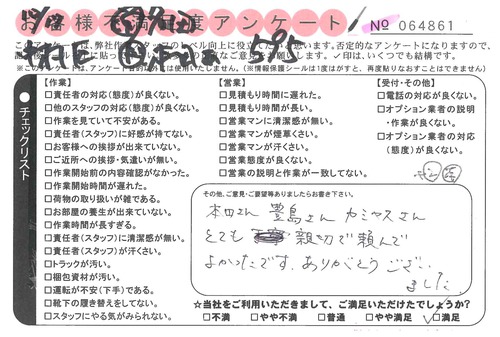 お客様不満足度アンケート
No 064861
このアンケートは、弊社作業スタッフのレベル向上に役立てたいと思います。否定的なアンケートになりますので、
ご意見をお願いします。✓印は、いくつでも結構です。
【作業】
□責任者の対応(態度)が良くない。
□他のスタッフの対応(態度)が良くない。
□作業を見ていて不安がある。
□責任者(スタッフ)に好感が持てない。
□お客様への挨拶が出来ていない。
□ご近所への挨拶・気遣いが無い。
□作業開始前の内容確認がなかった。
□作業開始時間が遅れた。
□荷物の取り扱いが雑である。
□お部屋の養生が出来ていない。
□作業時間が長すぎる。
□責任者(スタッフ)に清潔感が無い。
□責任者(スタッフ)が汗くさい。
□トラックが汚い。
□梱包資材が汚い。
□運転が不安(下手)である。
□靴下の履き替えをしてない。
□スタッフにやる気がみられない。
【営業】
□見積もり時間に遅れた。
□見積もり時間が長い。
□営業マンに清潔感が無い。
□営業マンが煙草くさい。
□営業マンが汗くさい。
□営業態度が良くない。
□営業の説明と作業が一致してない。
【受付・その他】
□電話の対応が良くない。
□オプション業者の説明
・作業が良くない。
□オプション業者の対応
(態度)が良くない。
●チェックリスト
その他、ご意見・ご要望等ありましたらお書き下さい。
本田さん 豊島さん カミヤスさん
とても 親切で頼んで
よかったです。ありがとうござい
ました。
☆当社をご利用いただきまして、ご満足いただけたでしょうか?
□不満 □やや不満 □普通 □やや満足 □満足